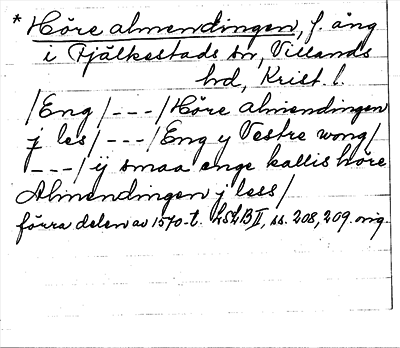 * Höre almendingen, f. äng
i Fjälkestads sn, Villands
hd, Krist. l.
/Eng/---/Höre almendingen
j les/---/Eng y Vestre wong/
---/ij smaa enge kallis höre
Almendingen j less/
förra delen av 1570-t. LSLB II, ss. 208, 209. orig.